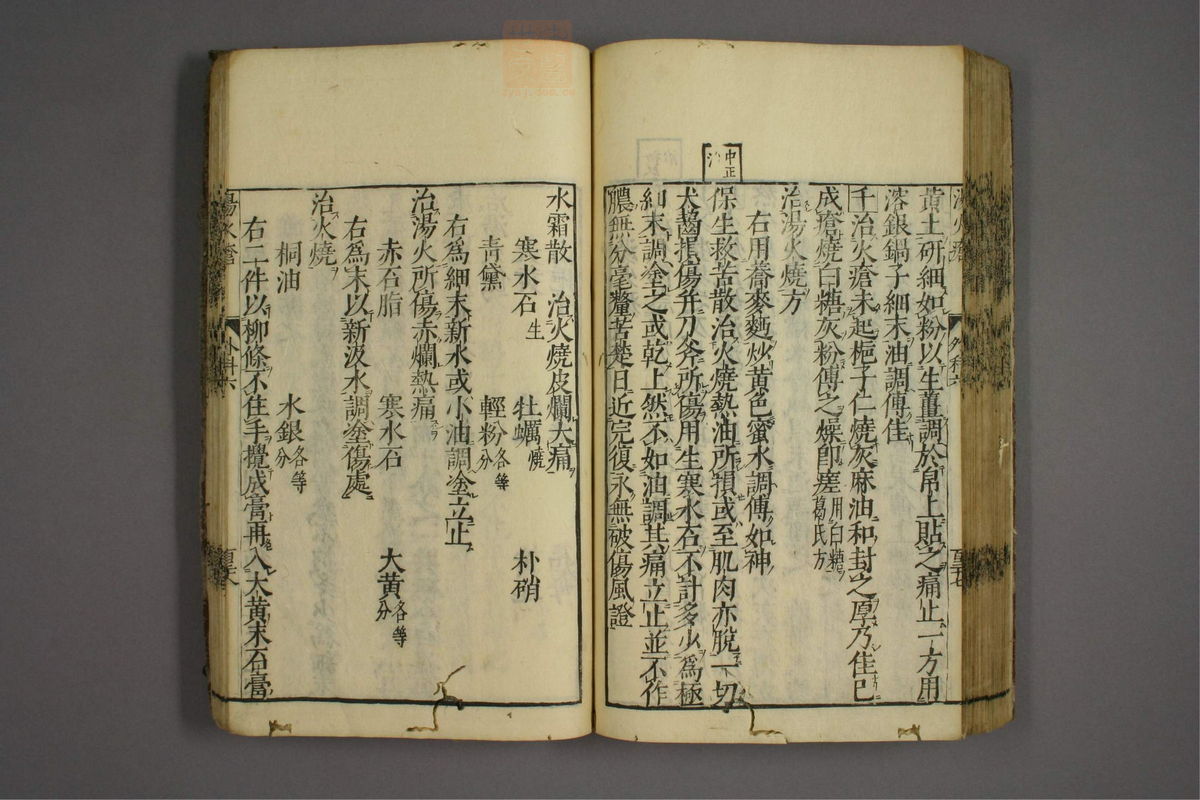 中正
黃土研細如粉以生薑調於帛上貼之痛止一方用
溶銀鍋子細末油調傅佳
千治火瘡未起梔子仁燒灰麻油和封之厚乃佳已
成瘡燒白糖灰粉傅之燥即瘥用白糖葛氏方
治湯火燒方
右用蕎麥麪炒黃色蜜水調傅如神
保生救苦散治火燒熱油所損或至肌肉亦脫一切
犬齧損傷并刀斧所傷用生寒水石不計多少爲極
細末調塗之或乾上然不如油調其痛立止並不作
膿無分毫釐苦楚日近完復永無破傷風證
水霜散 治火燒皮爛大痛
寒水石生 牡蠣燒 朴硝
青黛 輕粉各等分
右爲細末新水或小油調塗立止
治湯火所傷赤爛熱痛
赤石脂 寒水石 大黃各等分
右爲末以新汲水調塗傷處
治火燒
桐油 水銀各等分
右二件以柳條不住手攪成膏再入大黃末石膏
外科六